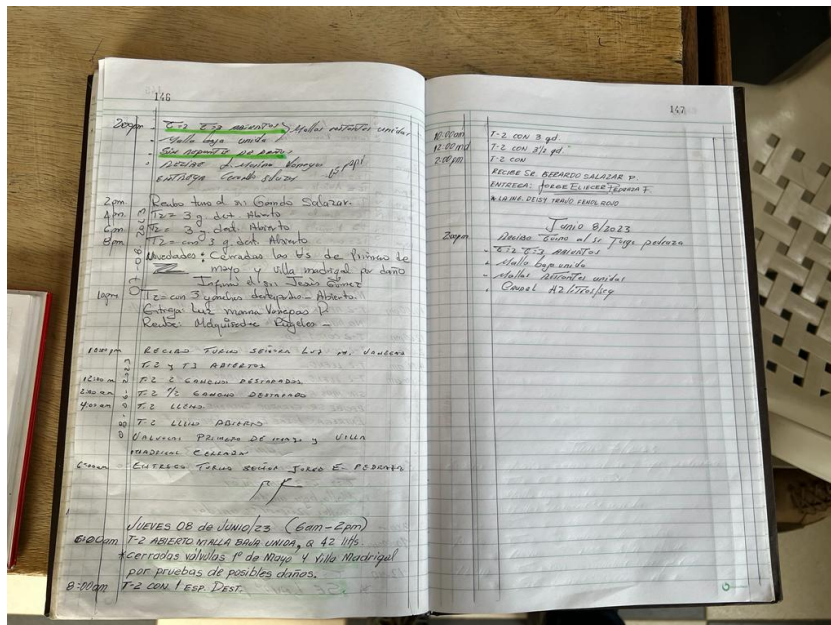 146
2:00pm T-2 T-3 ABIERTOS, Mallas restantes unidas
- Malla baja unida
SIN REPORTE DE DAÑOS
RECIBE L. Marina Vanegas
ENTREGA Gerardo Salazar
07-06-2023
2pm Recibo turno al sr. Salazar.
4pm T2 = 3 g. det. Abierto
6pm T2 = 3 g. dest. Abierto
8pm T2 = con 3 g. det. Abierto
Novedades: Cerradas las V's de Primero de
mayo y villa madrigal por daño
Informó el sr. Jesús Gómez
10pm T2 = con 3 ganchos destapados - Abierto.
Entrega: Luz marina Vanegas
Recibe: Melquisedec
08-06-2023
10:00pm RECIBO TURNO SEÑORA LUZ M. VANEGAS
T-2 y T3 ABIERTOS
12:00 m T-2 2 GANCHO DESTAPADOS
2:00 am T-2 1/2 GANCHO DESTAPADO
4:00 am T-2 LLENO
T-2 LLENO ABIERTO
VALVULAS PRIMERO DE mayo y VILLA
MADRIGAL CERRADAS
6:00am ENTREGO TURNO SEÑOR JORGE E- PEDRAZA
JUEVES 08 de JUNIO/23 (6am-2pm)
6:00am T-2 ABIERTO MALLA BAJA UNIDA, Q 42 lt/s.
*cerradas válvulas 1º de Mayo y Villa Madrigal
por pruebas de posibles daños.
8:00am T-2 CON 1 ESP. DEST.
147
10:00am T-2 CON 3 gd.
12:00md T-2 CON 3½ gd.
2:00pm T-2 CON
RECIBE SR GERARDO SALAZAR P.
ENTREGA: JORGE ELIECER PEDROZA F.
* LA ING. DEISY TRAJO FENOL ROJO
Junio 8/2023
2:00pm Recibo turno al sr Jorge pedroza
- T-2 T-3 ABIERTOS
- Malla baja unida
- Mallas RESTANTES unidas
. Caudal 42 litros/seg